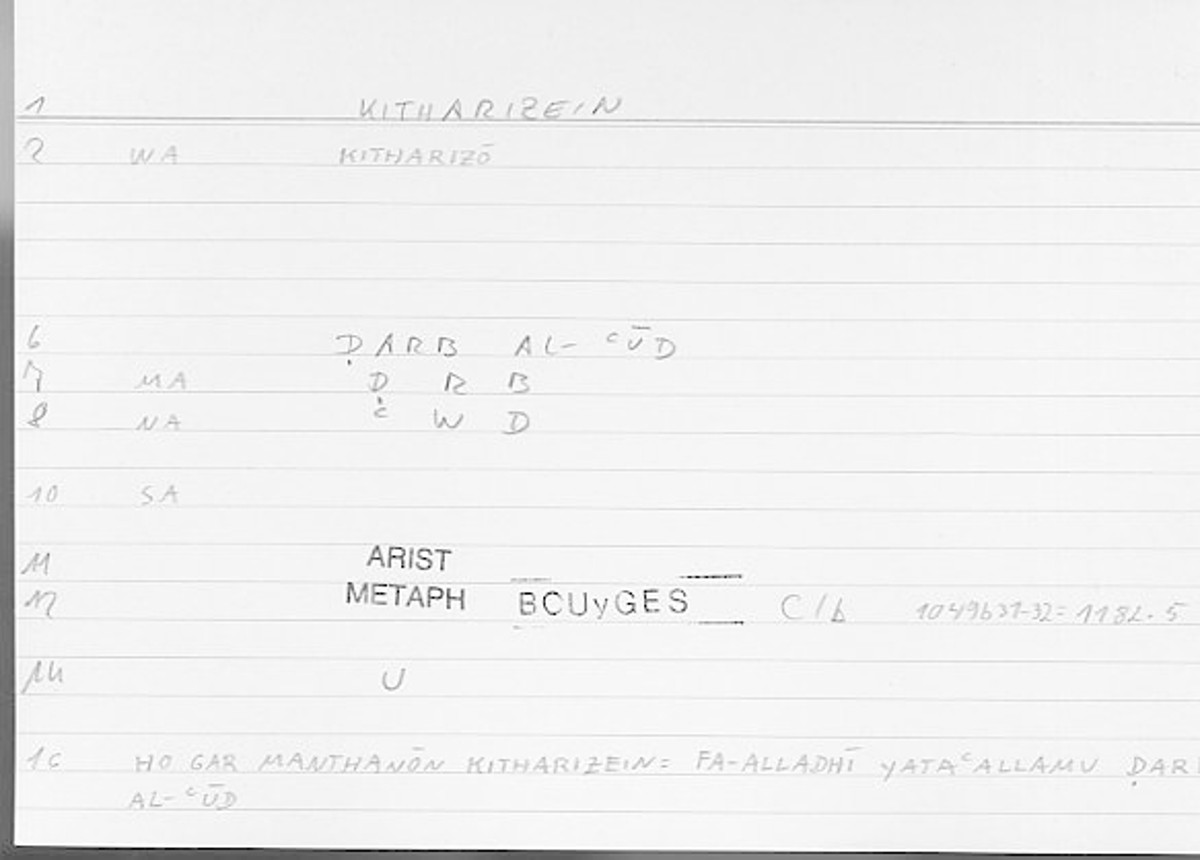 1 KITHARIZEIN
2 WA KITHARIZŌ
6 ḌARB AL-ᶜŪD
7 MA Ḍ R B
8 NA ᶜ W D
10 SA
11 ARIST
12 METAPH BCUyGES C/b 1049b31-32= 1182.5
14 U
16 HO GAR MANTHANŌN KITHARIZEIN= FA-ALLADHĪ YATAᶜALLAMU ḌAR
AL-ᶜŪD